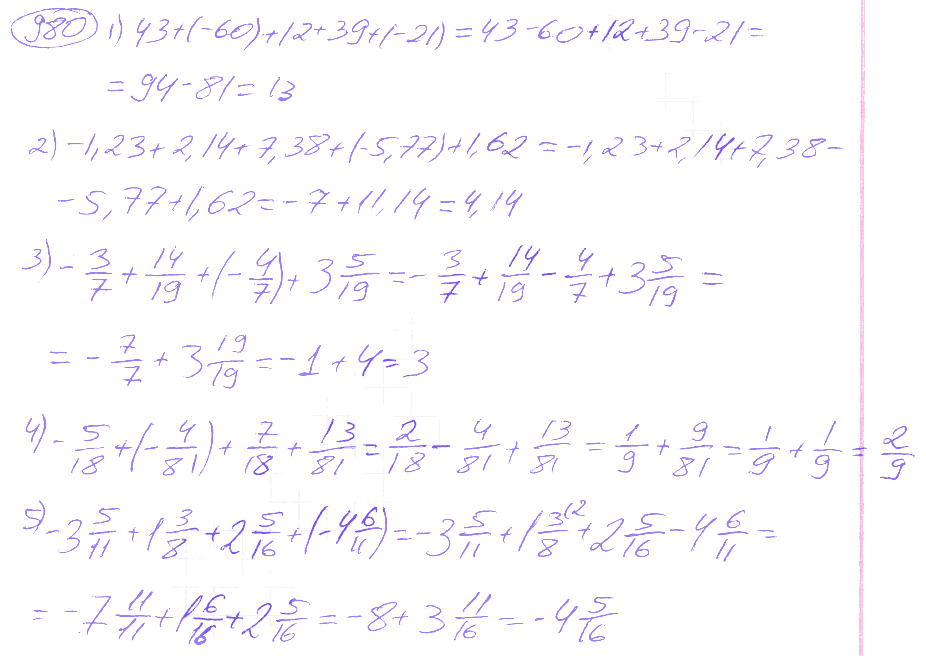 980 1) 43+(-60)+12+39+(-21)=43-60+12+39-21=
=94-81=13
2) -1,23+2,14+7,38+(-5,77)+1,62=-1,23+2,14+7,38-
-5,77+1,62=-7+11,14=4,14
3) -3/7+14/19+(-4/7)+3 5/19=-3/7+14/19-4/7+3 5/19=
=-7/7+3 19/19=-1+4=3
4) -5/18+(-4/81)+7/18+13/81=2/18-4/81+13/81=1/9+9/81=1/9+1/9=2/9
5) -3 5/11+1 3/8+2 5/16+(-4 6/11)=-3 5/11+1 3/8(2+2 5/16-4 6/11=
=-7 11/11+1 6/16+2 5/16=-8+3 11/16=-4 5/16